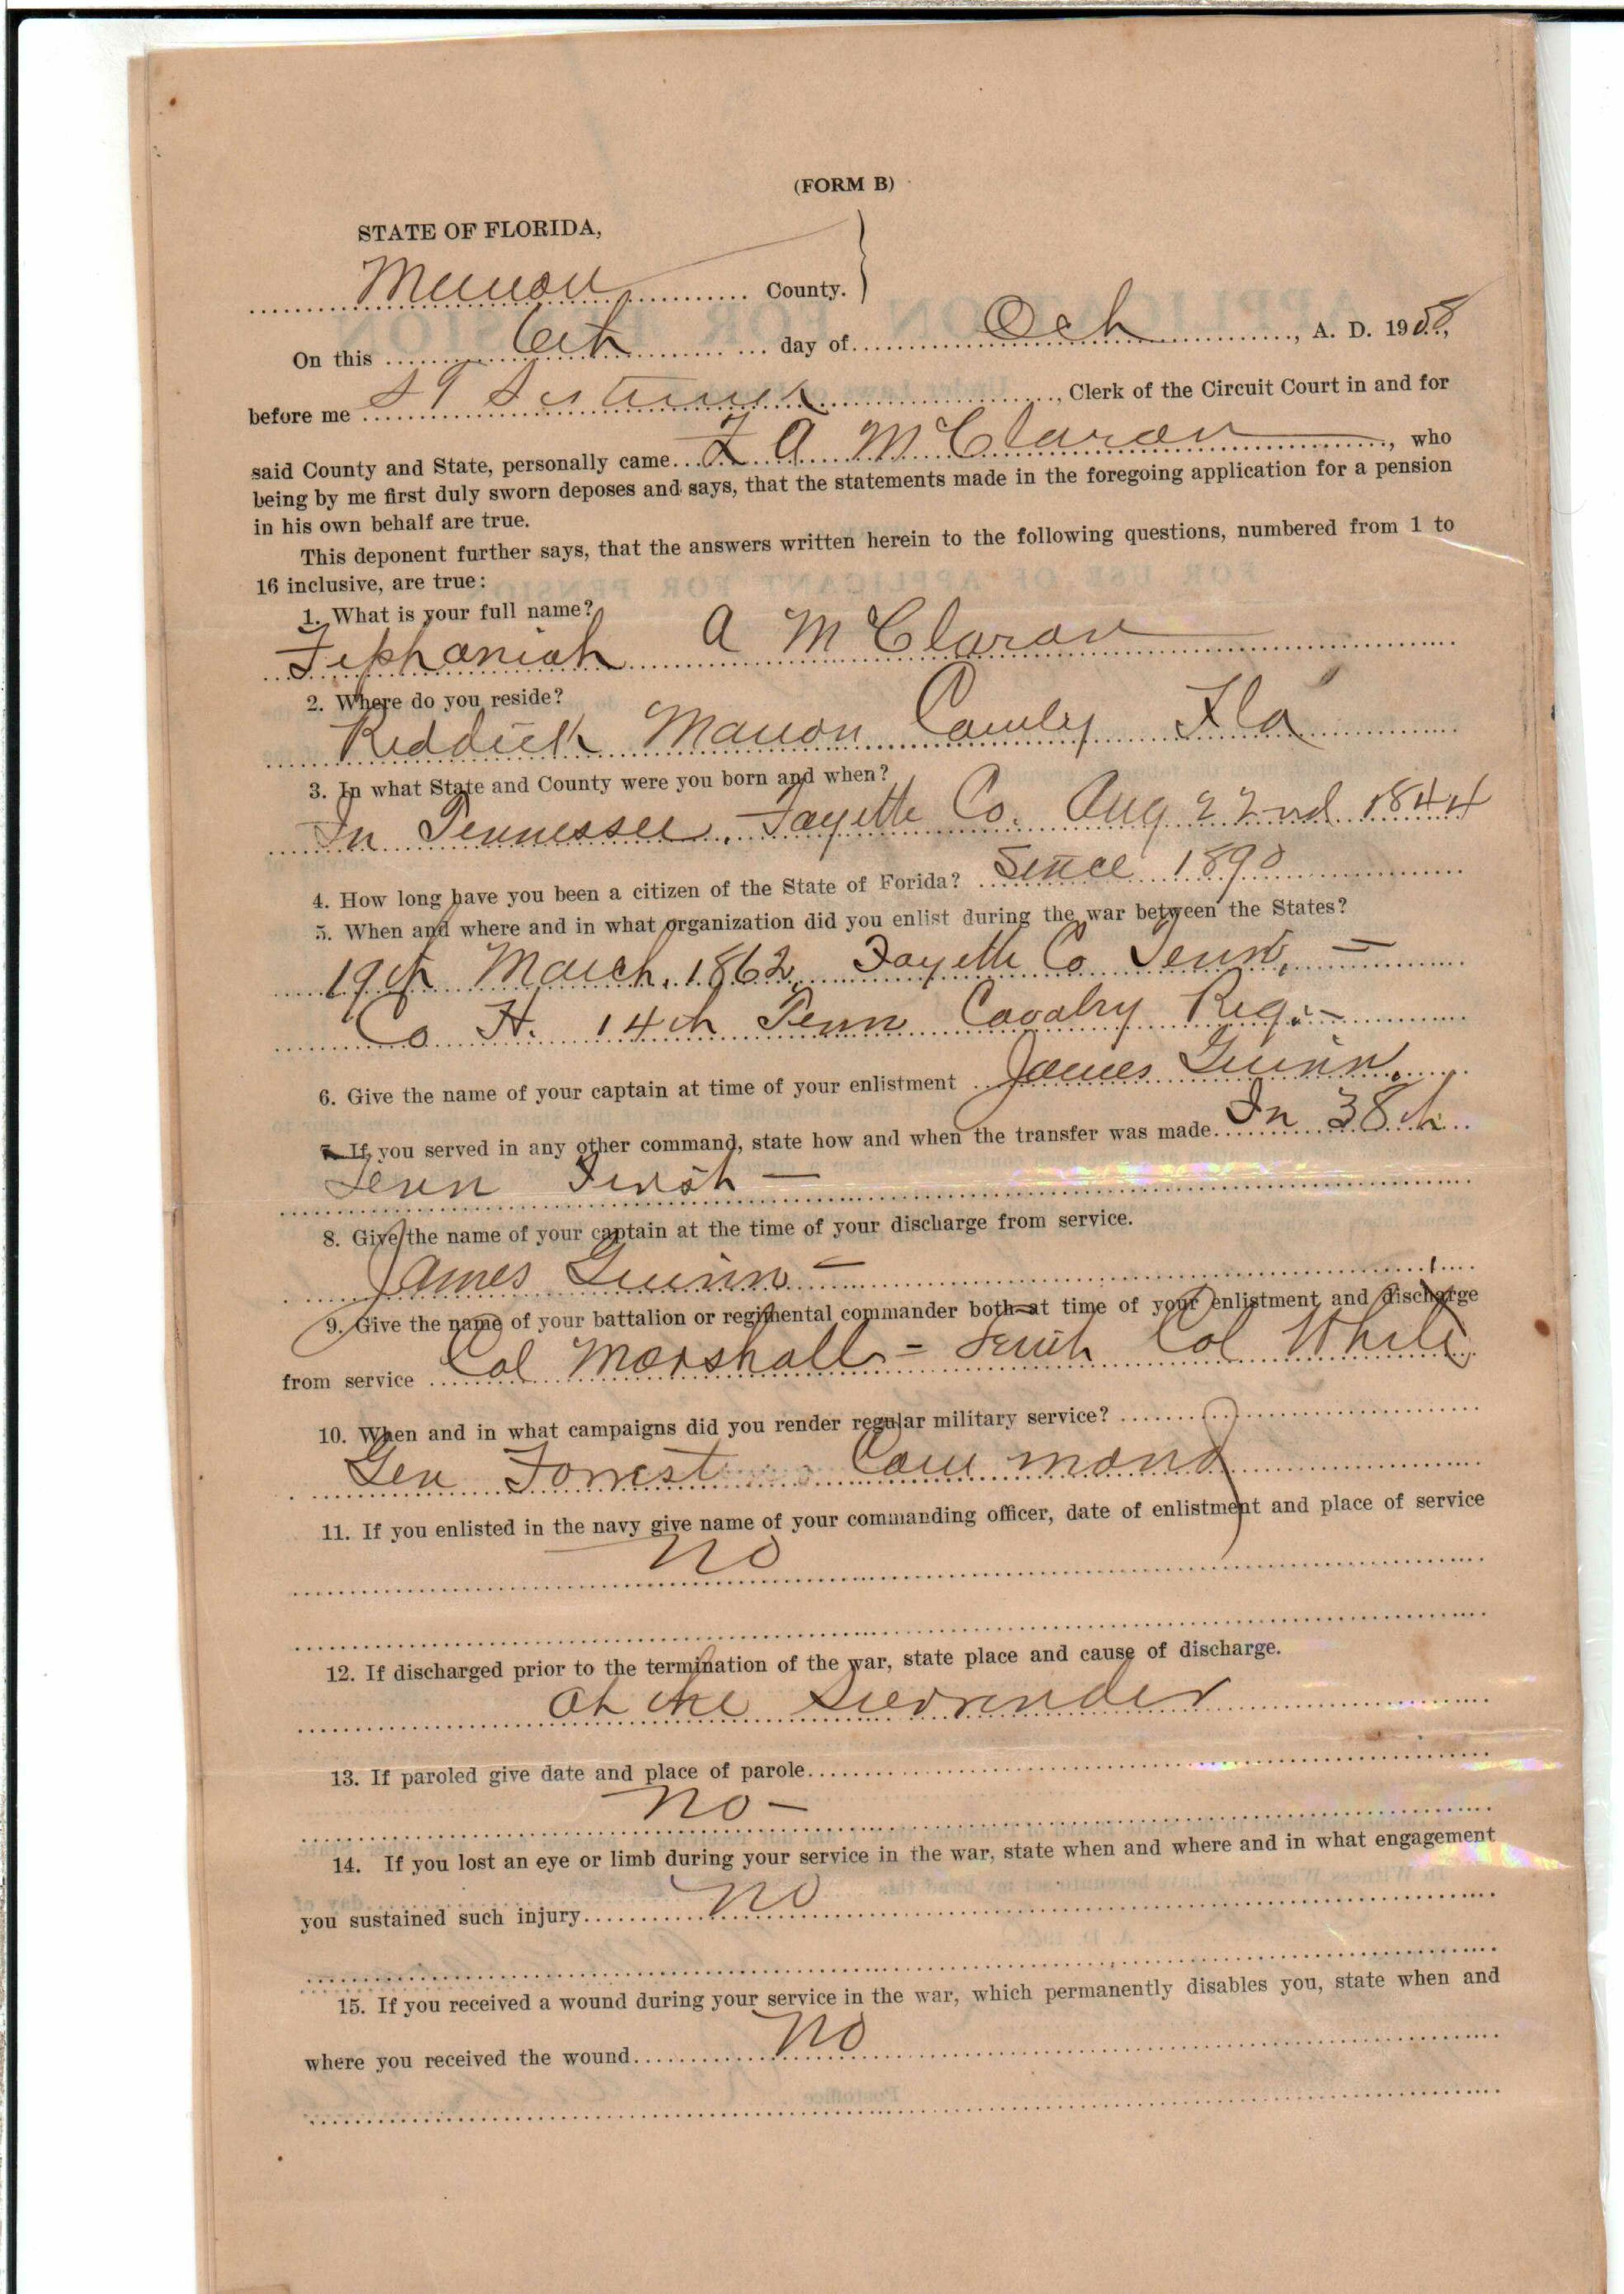 (FORM B)
STATE OF FLORIDA,
Marion County.
On this 6th day of Oct, A. D. 1908,
before me S T Sistrunk, Clerk of the Circuit Court in and for
said County and State, personally came Z A McClaron, who
being by me first duly sworn deposes and says, that the statements made in the foregoing application for a pension
in his own behalf are true.
This deponent further says, that the answers written herein to the following questions, numbered from 1 to
16 inclusive, are true:
1. What is your full name?
Zephaniah A McClaron
2. Where do you reside?
Reddick Marion County Fla
3. In what State and County were you born and when?
In Tennessee, Fayette Co. Aug 22nd 1844
4. How long have you been a citizen of the State of Forida? Since 1890
5. When and where and in what organization did you enlist during the war between the States?
19th March, 1862, Fayette Co Tenn, —
Co H. 14th Tenn Cavalry Reg. —
6. Give the name of your captain at time of your enlistment James Gwinn.
7. If you served in any other command, state how and when the transfer was made. In 38th
Tenn First —
8. Give the name of your captain at the time of your discharge from service.
James Gwinn —
9. Give the name of your battalion or regimental commander both at time of your enlistment and discharge
from service Col Marshall - Col White
10. When and in what campaigns did you render regular military service?
Gen Forrest Command
11. If you enlisted in the navy give name of your commanding officer, date of enlistment and place of service
no
12. If discharged prior to the termination of the war, state place and cause of discharge.
at the Surrender
13. If paroled give date and place of parole
no —
14. If you lost an eye or limb during your service in the war, state when and where and in what engagement
you sustained such injury no
15. If you received a wound during your service in the war, which permanently disables you, state when and
where you received the wound no